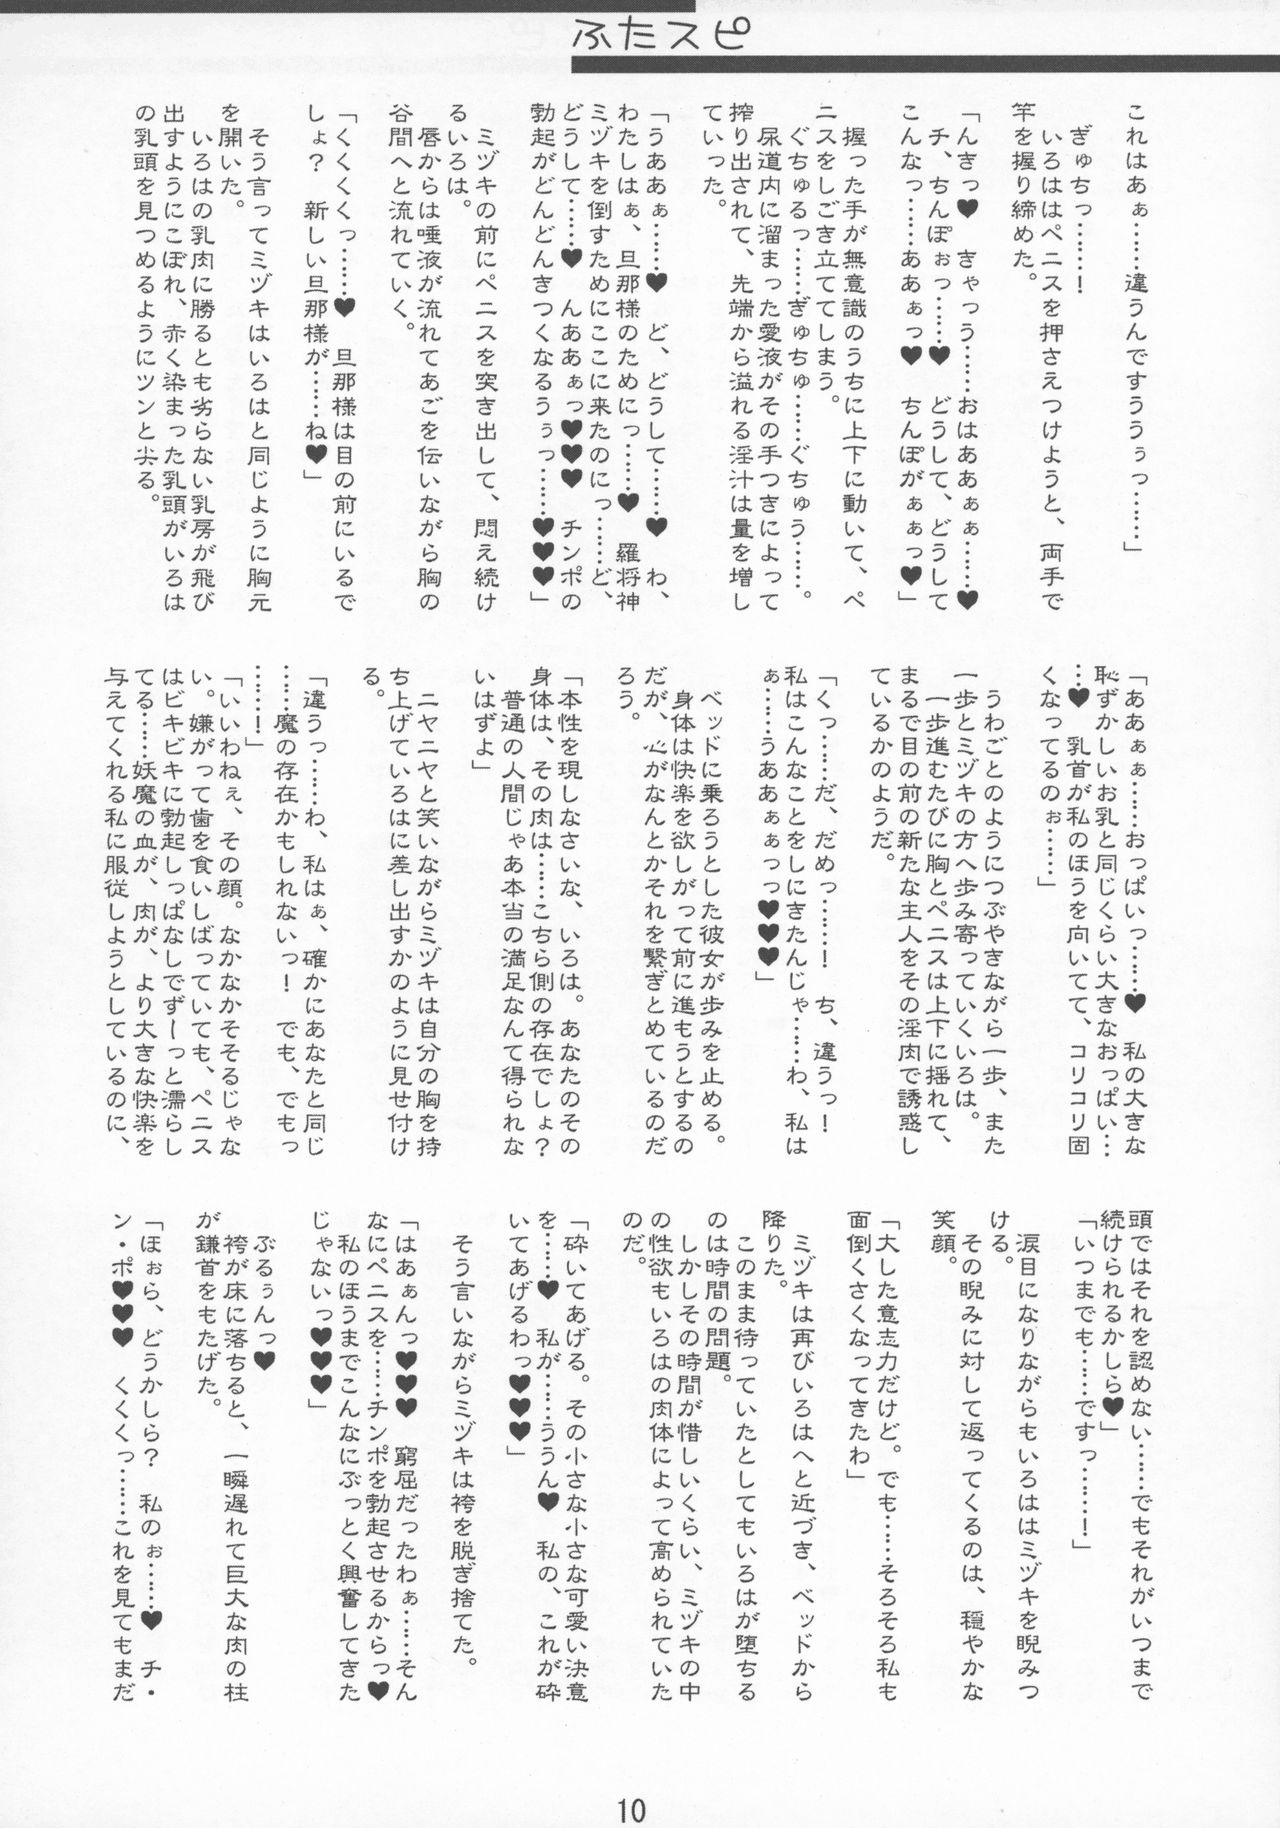 ふたスピ
これはあぁ……違うんですううぅっ……」
ぎゅちっ……！
いろははペニスを押さえつけようと、両手で
竿を握り締めた。
「んぎっ♥　きゃっう……おはああぁぁ……♥
チ、ちんぽぉっ……♥　どうして、どうして
こんなっ……ああぁっ♥　ちんぽがぁぁっ♥」
握った手が無意識のうちに上下に動いて、ペ
ニスをしごき立ててしまう。
ぐちゅるっ……ぎゅちゅ……ぐちゅう……。
尿道内に溜まった愛液がその手つきによって
搾り出されて、先端から溢れる淫汁は量を増し
ていった。
「うああぁ……♥　ど、どうして……♥　わ、
わたしはぁ、旦那様のためにっ……♥　羅将神
ミヅキを倒すためにここに来たのにっ……ど、
どうして……♥　んああぁっ♥♥♥　チンポの
勃起がどんどんきつくなるうぅっ……♥♥♥」
ミヅキの前にペニスを突き出して、悶え続け
るいろは。
唇からは唾液が流れてあごを伝いながら胸の
谷間へと流れていく。
「くくくくっ……♥　旦那様は目の前にいるで
しょ？　新しい旦那様が……ね♥」
そう言ってミヅキはいろはと同じように胸元
を開いた。
いろはの乳肉に勝るとも劣らない乳房が飛び
出すようにこぼれ、赤く染まった乳頭がいろは
の乳頭を見つめるようにツンと尖る。
「ああぁぁ……おっぱいっ……♥　私の大きな
恥ずかしいお乳と同じくらい大きなおっぱい…
…♥　乳首が私のほうを向いてて、コリコリ固
くなってるのぉ……」
うわごとのようにつぶやきながら一歩、また
一歩とミヅキの方へ歩み寄っていくいろは。
一歩進むたびに胸とペニスは上下に揺れて、
まるで目の前の新たな主人をその淫肉で誘惑し
ているかのようだ。
「くっ……だ、だめっ……！　ち、違うっ！
私はこんなことをしにきたんじゃ……わ、私は
ぁ……うああぁぁっっ♥♥♥」
ベッドに乗ろうとした彼女が歩みを止める。
身体は快楽を欲しがって前に進もうとするの
だが、心がなんとかそれを繋ぎとめているのだ
ろう。
「本性を現しなさいな、いろは。あなたのその
身体は、その肉は……こちら側の存在でしょ？
普通の人間じゃあ本当の満足なんて得られな
いはずよ」
ニヤニヤと笑いながらミヅキは自分の胸を持
ち上げていろはに差し出すかのように見せ付け
る。
「違うっ……わ、私はぁ、確かにあなたと同じ
……魔の存在かもしれないっ！　でも、でもっ
……！」
「いいわねぇ、その顔。なかなかそそるじゃな
い。嫌がって歯を食いしばっていても、ペニス
はビキビキに勃起しっぱなしでず～っと濡らし
てる……妖魔の血が、肉が、より大きな快楽を
与えてくれる私に服従しようとしているのに、
頭ではそれを認めない……でもそれがいつまで
続けられるかしら♥」
「いつまでも……ですっ……！」
涙目になりながらもいろははミヅキを睨みつ
ける。
その睨みに対して返ってくるのは、穏やかな
笑顔。
「大した意志力だけど。でも……そろそろ私も
面倒くさくなってきたわ」
ミヅキは再びいろはへと近づき、ベッドから
降りた。
このまま待っていたとしてもいろはが堕ちる
のは時間の問題。
しかしその時間が惜しいくらい、ミヅキの中
の性欲もいろはの肉体によって高められていた
のだ。
「砕いてあげる。その小さな小さな可愛い決意
を……♥　私が……ううん♥　私の、これが砕
いてあげるわっ♥♥♥」
そう言いながらミヅキは袴を脱ぎ捨てた。
「はあぁんっ♥♥♥　窮屈だったわぁ……そん
なにペニスを……チンポを勃起させるからっ♥
私のほうまでこんなにぶっとく興奮してきた
じゃないっ♥♥♥」
ぶるぅんっ♥
袴が床に落ちると、一瞬遅れて巨大な肉の柱
が鎌首をもたげた。
「ほぉら、どうかしら？　私のぉ……♥　チ・
ン・ポ♥♥♥　くくくっ……これを見てもまだ
10